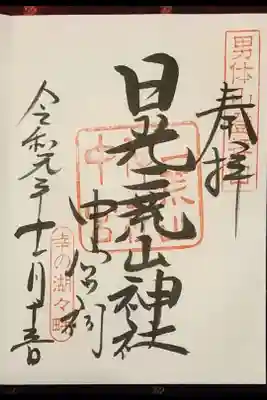 奉拝
日光二荒山神社
中宮祠
令和元年十一月十三日
幸の湖々畔